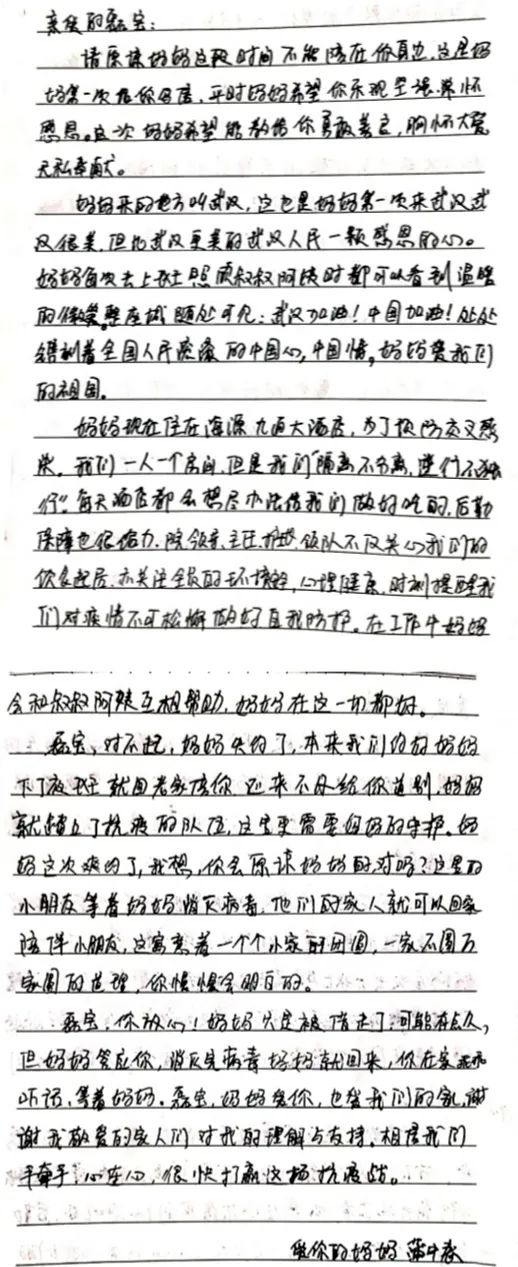 亲爱的磊宝:
请原谅妈妈这段时间不能陪在你身边,这是妈
妈第一次给你写信,平时妈妈希望你乐观坚强,常怀
感恩。这一次妈妈希望能教给你勇敢善良,胸怀大爱
无私奉献。
妈妈来的地方叫武汉,这也是妈妈第一次来武汉武
汉很美,但比武汉更美的武汉人民一颗感恩的心。
妈妈每次去上班照顾叔叔阿姨时都可以看到温暖
的微笑。整座城随处可见:武汉加油!中国加油!处处
镌刻着全国人民滚滚的中国心,中国情,妈妈爱我们
的祖国。
妈妈现在住在海源九通大酒店,为了预防交叉感
染,我们一人一个房间,但是我们“隔离不分离,逆行不独
行”。每天酒店都会想尽办法给我们做好吃的,后勤
保障也很给力,院领导、主任、护士长、领队不仅关心我们的
饮食起居,亦关注全员的环境,心理健康,时刻提醒我
们对疫情不可松懈做好自我防护。在工作中妈妈
会和叔叔阿姨互相帮助,妈妈在这一切都好。
磊宝,对不起,妈妈失约了,本来我们约好妈妈
下了夜班就回老家陪你 还来不及给你道别,妈妈
就踏上了抗疫的队伍,这里更需要妈妈的守护。妈
妈这次爽约了,我想,你会原谅妈妈的对吗?这里的
小朋友等着妈妈消灭病毒,他们的家人就可以回家
陪伴小朋友,这寓意着一个个小家的团圆,一家不圆万
家圆的道理,你慢慢会明白的。
磊宝,你放心!妈妈只是被借走了,可能有点久,
但妈妈答应你,消灭完病毒妈妈就回来,你在家
听话,等着妈妈。磊宝,妈妈爱你,也爱我们的家,谢
谢我敬爱的家人们对我的理解与支持,相信我们
手牵手,心连心,很快打赢这场抗疫战。
爱你的妈妈 蒲